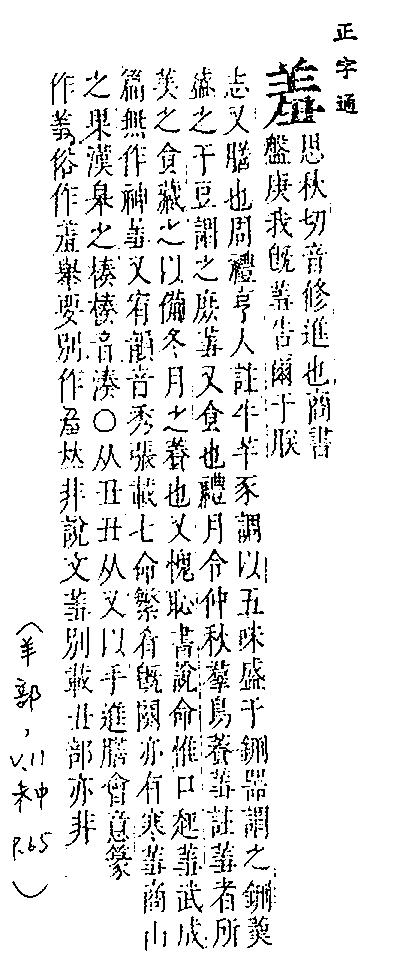 正字通
羞
思秋切音修進也商書
盤庚我旣羞告爾于朕
志又膳也周禮亨人註牛羊豕調以五味盛于鉶器謂之鉶羹
盛之于豆謂之庶羞又食也禮月令仲秋羣鳥養羞註羞者所
美之食藏之以備冬月之養也又愧恥書說命惟口起羞武成
篇無作神羞又宥韻音秀張載七命繁肴旣闋亦有寒羞商山
之果漢皋之楱楱音湊○从丑丑从又以手進膳會意篆
作羞俗作羞舉要別作𦎍𠀤非說文羞別載丑部亦非
(羊部,
V.11
未中
P.65)